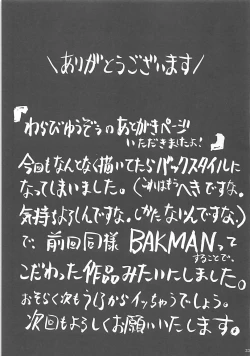 ありがとうございます
『わらびゆうぞうのあとがきページ
いただきましたよ!』
今回もなんとなく描いてたらバックスタイルに
なってしまいました。(これはもうへきですな。
気持ちよろしんですな。しかたないんですな。)
で、前回同様 BAKMANって
することで、
こだわった作品みたいにしました。
おそらく次もうしろからイッちゃうでしょう。
次回もよろしくお願いいたします。